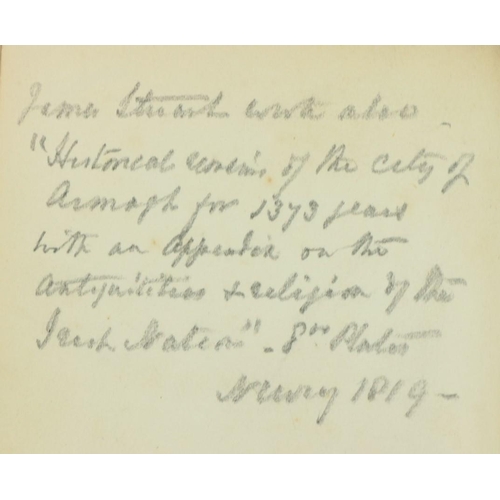 James Stuart wrote also
"Historical memoirs of the City of
Armagh for 1373 years
with an Appendix on the
Antiquities & religion of the
Irish Nation" - 8vo Plates
Newry 1819 -